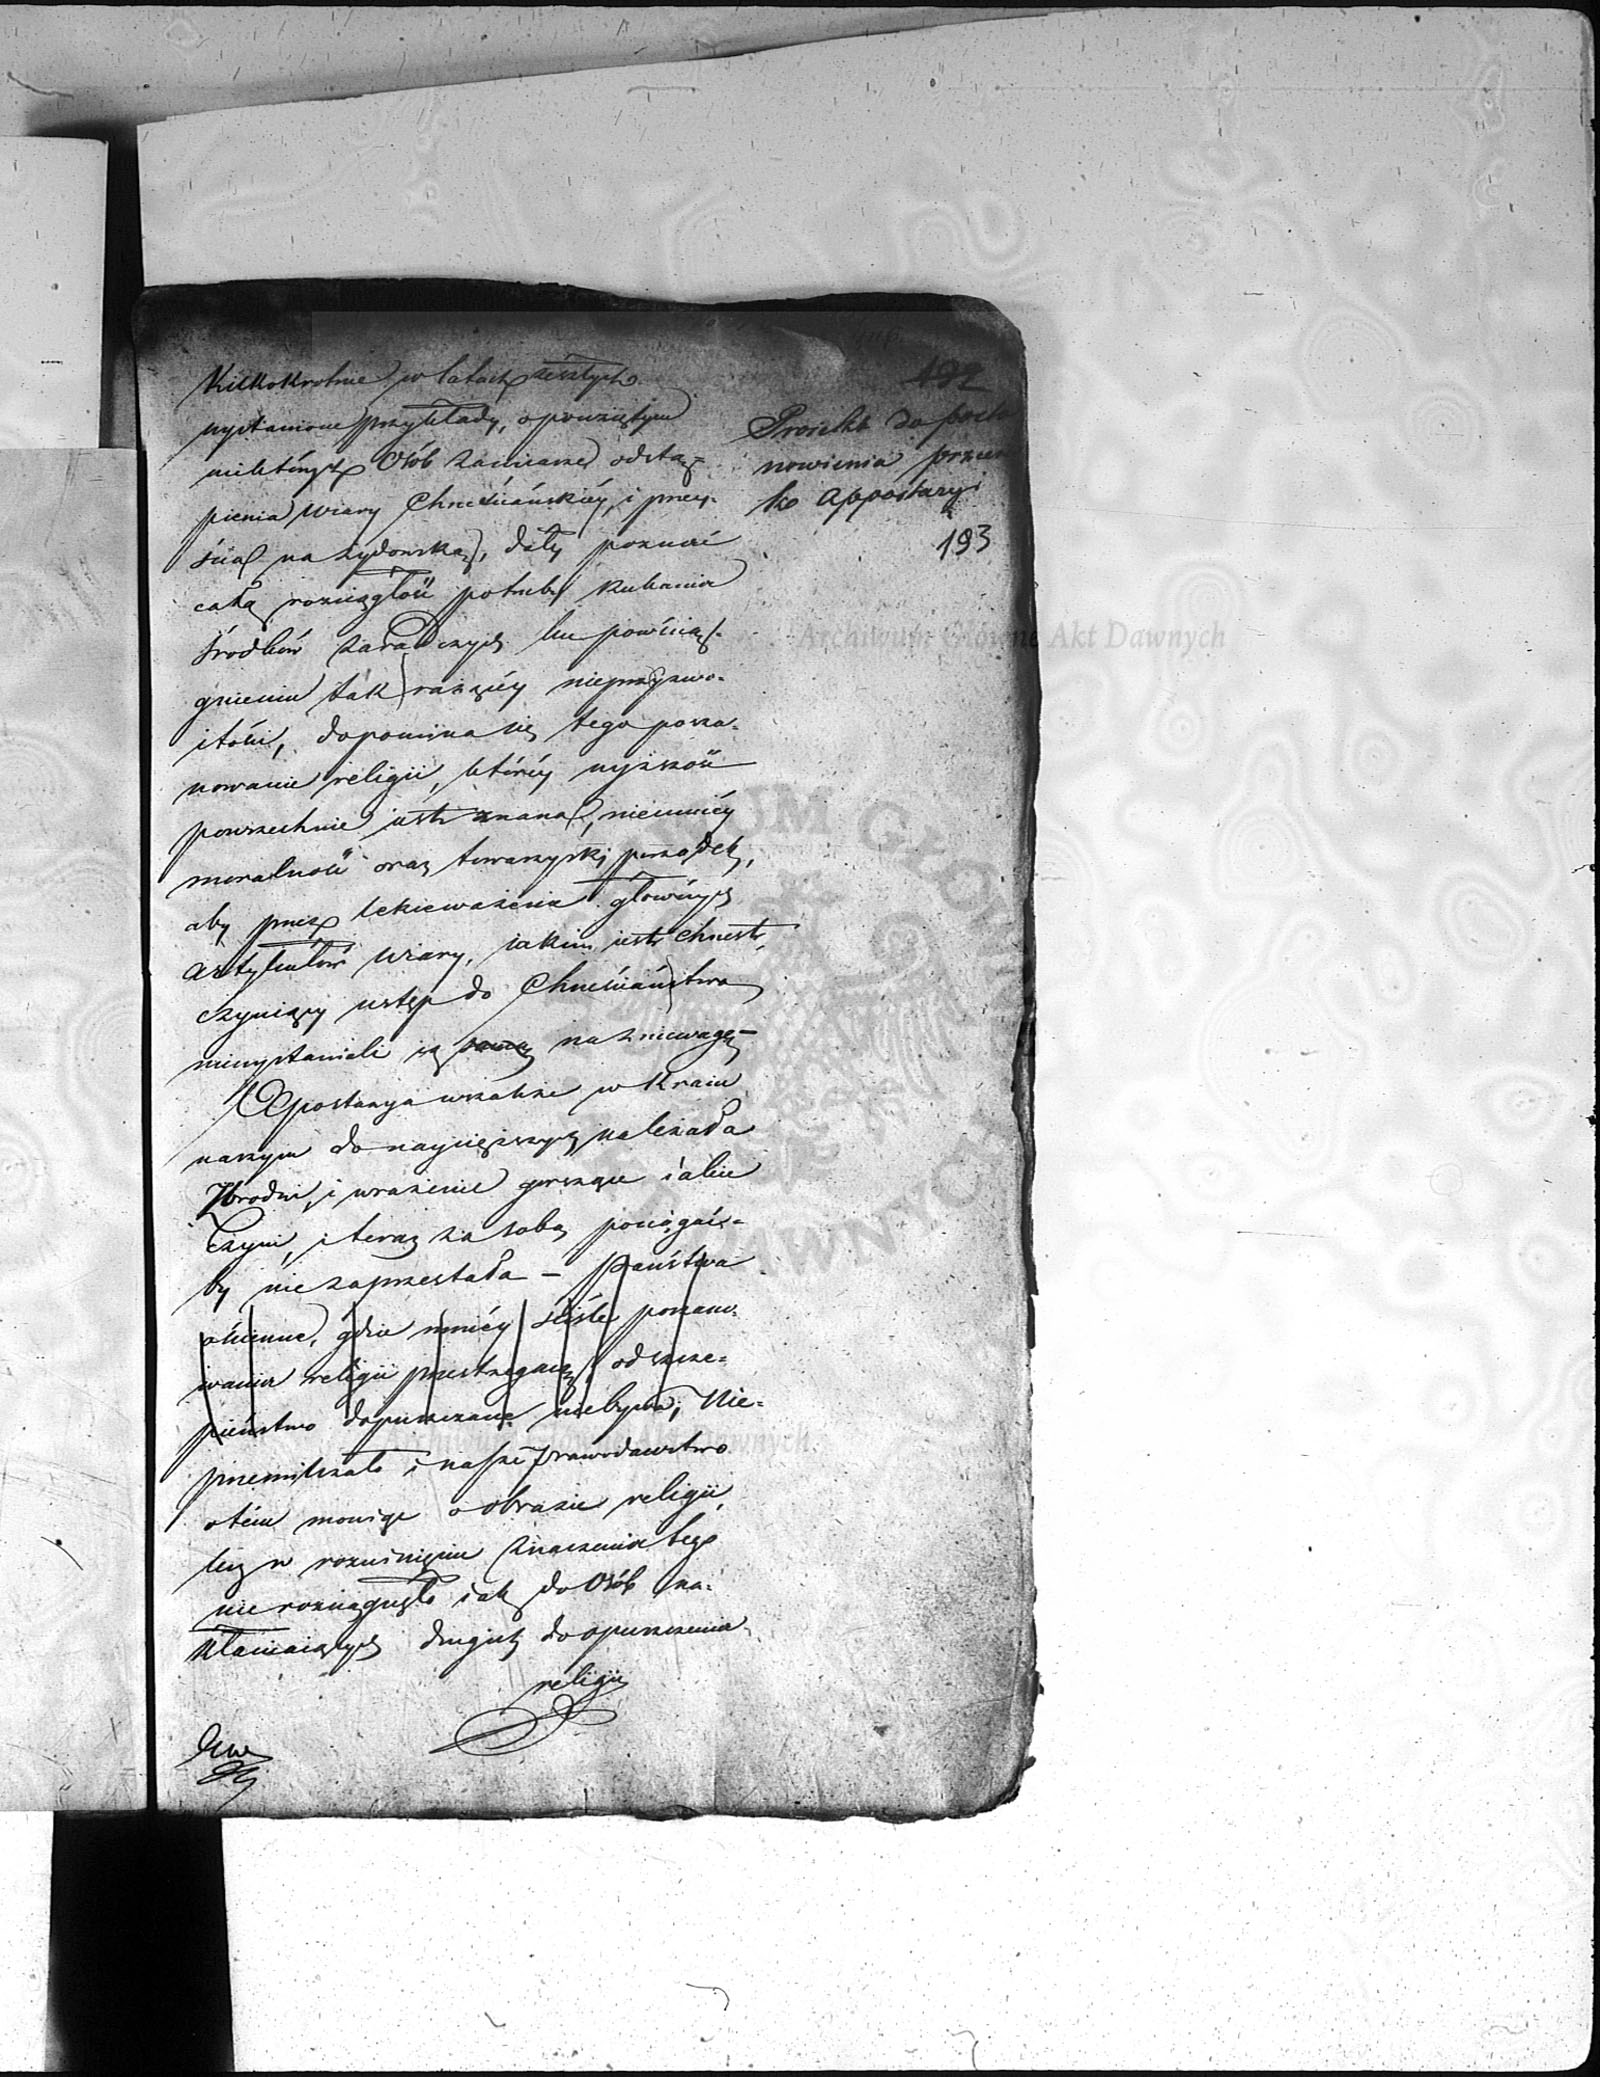 Kilkokrotnie w latach zeszłych
wystawione przykłady, o powziętym
niektórych Osób zamiarze odstą=
pienia wiary Chrześciańskiéy, i przey=
ścia na żydowską, dały poznać
całą rozciągłość potrzeby szukania
środków zaradczych ku powścią=
gnieniu tak rażącéy nieprzyzwo=
itości, dopomina się tego posza=
nowanie religii, któréy wyższość
powszechnie iest znana, niemniéy
moralność oraz towarzyski porządek,
aby przez lekceważenia głównych
artykułów wiary, iakim iest chrzest,
czyniący wstęp do Chrześciaństwa
niewystawiali ią na zniewagę –
Apostazya wszakże w Kraiu
naszym do naycięższych należała
Zbrodni, i wrażenie gorszące iakie
czyni, i teraz za sobą pociągać=
by nie zaprzestała – Państwa
ościenne, gdzie mniéy ściśle poszano=
wania religii przestrzegaią, odszcze=
pieństwo dopuszczane niebywa; Nie=
przemilczało i nasze Prawodawstwo
o tém mówiąc o obrazie religii,
lecz w rozciągnięciu znaczenia tego
nie rozciągnęło iak do Osób na=
kłaniaiących drugich do opuszczenia
religii
192
Proiekt do posta
nowienia przeciw
ko Appostazyi
193
Archiwum Główne Akt Dawnych
Archiwum Główne Akt Dawnych